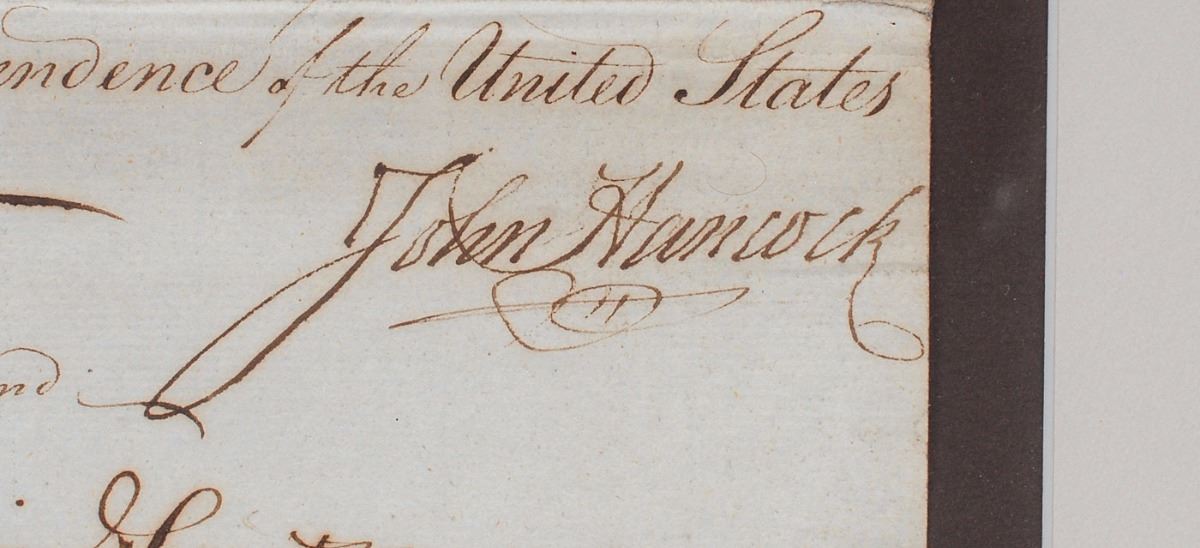 endence of the United States
John Hancock
nd